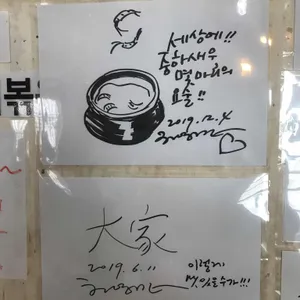 세상에!!
중하새우
몇 마리의
요술!!
2019.12.4
볶
大家
2019.6.11
이렇게
맛있을수가!!!